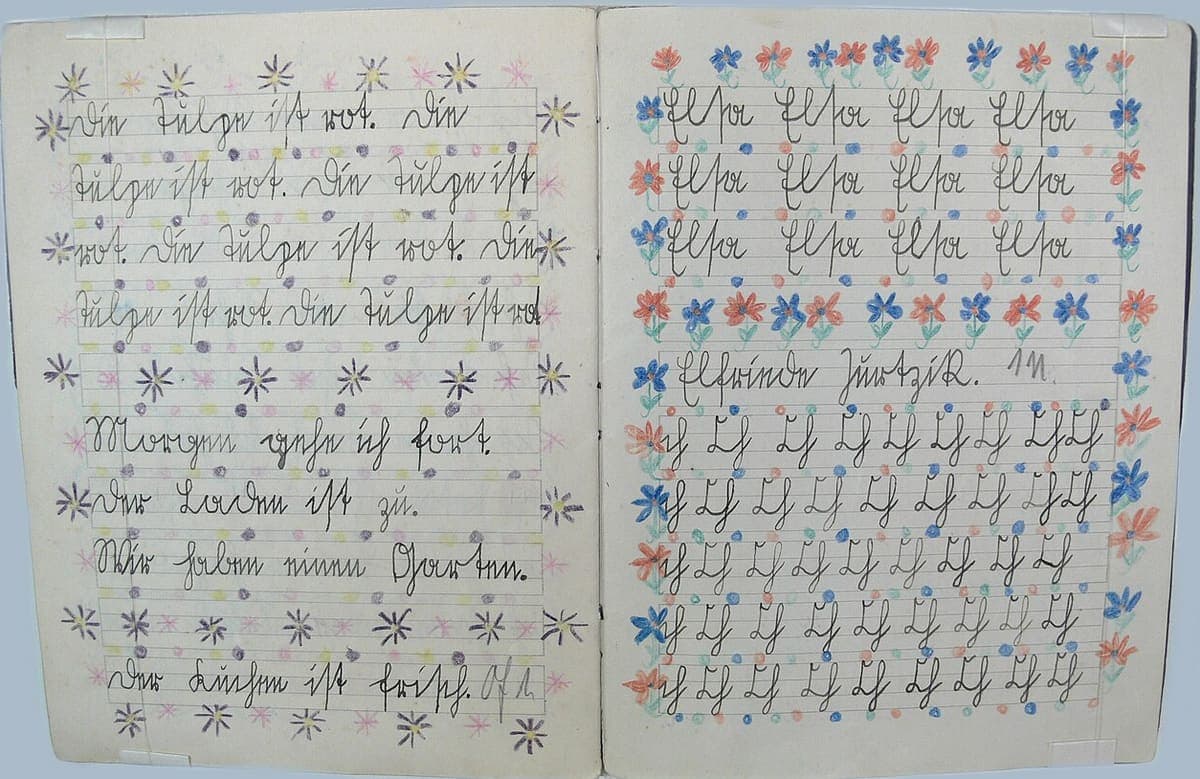 Die Tulpe ist rot. Die
Tulpe ist rot. Die Tulpe ist
rot. Die Tulpe ist rot. Die
Tulpe ist rot. Die Tulpe ist rot
Morgen gehe ich fort.
Der Laden ist zu.
Wir haben einen Garten.
Der Kuchen ist frisch.
Elsa Elsa Elsa Elsa
Elsa Elsa Elsa Elsa
Elsa Elsa Elsa Elsa
Elfriede Zurtzik.
Ch Ch Ch Ch Ch Ch Ch Ch Ch
Ch Ch Ch Ch Ch Ch Ch Ch Ch
Ch Ch Ch Ch Ch Ch Ch Ch Ch
Ch Ch Ch Ch Ch Ch Ch Ch Ch
Ch Ch Ch Ch Ch Ch Ch Ch Ch